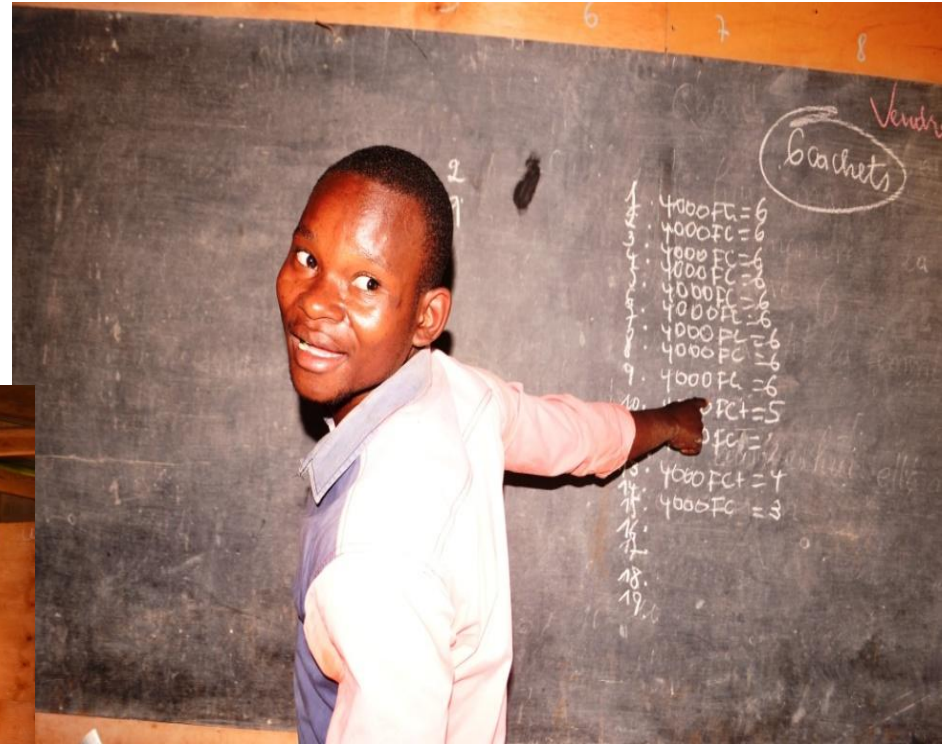 6 7 8
Vendr
6 cachets
2
1. 4000FC=6
2. 4000FC=6
3. 4000FC=6
4. 4000FC=6
4000FC=6
4000FC=6
4000FC=6
8. 4000FC=6
9. 4000FC=6
10. FC+=5
FC+=
13. 4000FC+=4
14.
15. 4000FC=3
16.
17
18.
19.